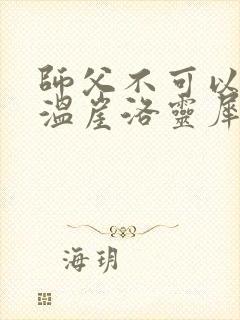 師父不可以
溫崖洛靈犀
海玥